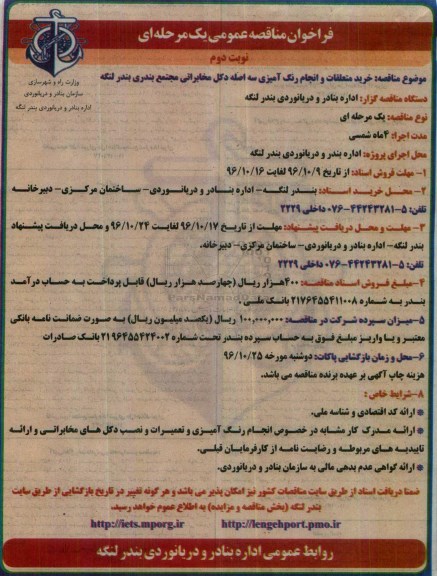 فراخوان مناقصه عمومی یک مرحله ای
نوبت دوم
وزارت راه و شهرسازی
سازمان بنادر و دریانوردی
اداره بنادر و دریانوردی بندر لنگه
موضوع مناقصه: خرید متعلقات و انجام رنگ آمیزی سه اصله دکل مخابراتی مجتمع بندری بندر لنگه
دستگاه مناقصه گزار: اداره بنادر و دریانوردی بندر لنگه
نوع مناقصه: یک مرحله ای
مدت اجرا: ۴ماه شمسی
محل اجرای پروژه: اداره بندر و دریانوردی بندر لنگه
۱- مهلت فروش اسناد: از تاریخ ۹۶/۱۰/۹ لغایت ۹۶/۱۰/۱۶
۲- محل خرید اسناد: بندر لنگه- اداره بنادر و دریانوردی- ساختمان مرکزی- دبیرخانه
تلفن: ۵-۰۷۶-۴۴۲۴۳۲۸۱ داخلی ۲۲۲۹
۳- مهلت و محل دریافت پیشنهاد: مهلت از تاریخ ۹۶/۱۰/۱۷ لغایت ۹۶/۱۰/۲۴ و محل دریافت پیشنهاد
بندر لنگه- اداره بندر و دریانوردی- ساختمان مرکزی- دبیرخانه.
تلفن: ۵-۰۷۶-۴۴۲۴۳۲۸۱ داخلی ۲۲۲۹
۴-مبلغ فروش اسناد مناقصه: ۴۰۰هزار ریال (چهارصد هزار ریال) قابل پرداخت به حساب درآمد
بندر به شماره ۲۱۷۶۴۵۵۴۱۱۰۰۸ بانک ملی .
۵-میزان سپرده شرکت در مناقصه: ۱۰۰,۰۰۰,۰۰۰ ریال (یکصد میلیون ریال) به صورت ضمانت نامه بانکی
معتبر و یا واریز مبلغ فوق به حساب سپرده بندر تحت شماره ۲۱۹۶۴۵۵۴۲۴۰۰۲ بانک صادرات
۶-محل و زمان بازگشایی پاکات: دوشنبه مورخه ۹۶/۱۰/۲۵
هزینه چاپ آگهی بر عهده برنده مناقصه می باشد.
۸-شرایط خاص :
ارائه کد اقتصادی و شناسه ملی.
ارائه مدرک کار مشابه در خصوص انجام رنگ آمیزی و تعمیرات و نصب دکل های مخابراتی و ارائه
تاییدیه های مربوطه و رضایت نامه از کارفرمایان قبلی.
ارائه گواهی عدم بدهی مالی به سازمان بنادر و دریانوردی.
ضمنا دریافت اسناد از طریق سایت مناقصات کشور نیز امکان پذیر می باشد و هر گونه تغییر در تاریخ بازگشایی از طریق سایت
بندر لنگه (بخش مناقصه و مزایده) به اطلاع عموم خواهد رسید.
http://iets.mporg.ir http://lengehport.pmo.ir
روابط عمومی اداره بنادر و دریانوردی بندر لنگه